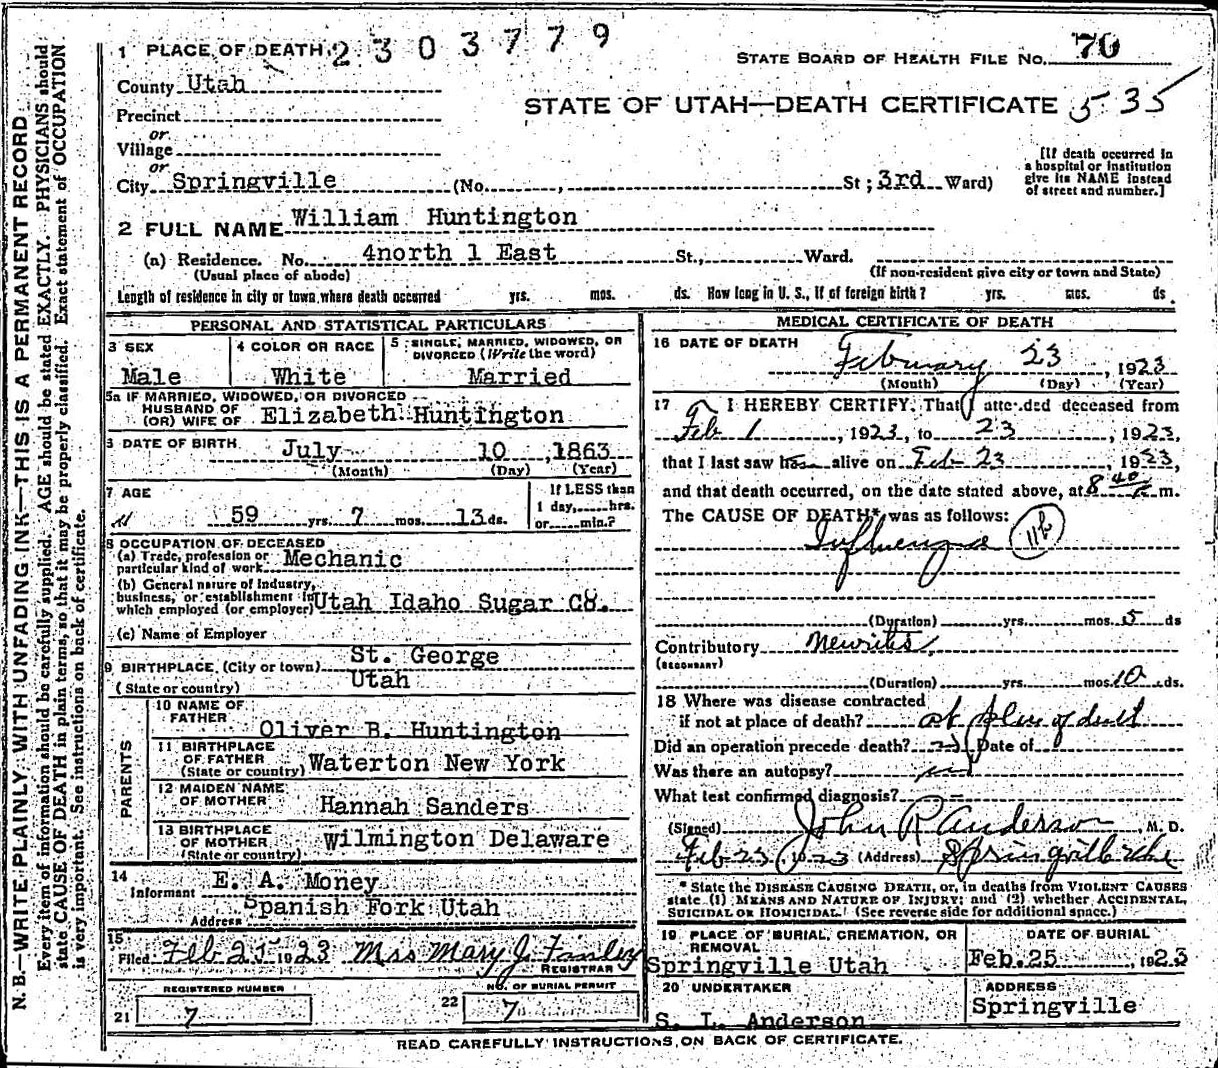 1 PLACE OF DEATH 2303779
STATE BOARD OF HEALTH FILE No. 70
County Utah
STATE OF UTAH—DEATH CERTIFICATE 535
Precinct
or
Village
or
City Springville (No. , St; 3rd Ward)
[If death occurred in
a hospital or institution
give its NAME instead
of street and number.]
2 FULL NAME William Huntington
(a) Residence. No. 4north 1 East St., Ward.
(Usual place of abode) (If non-resident give city or town and State)
Length of residence in city or town where death occurred yrs. mos. ds. How long in U. S., if of foreign birth? yrs. mos. ds.
PERSONAL AND STATISTICAL PARTICULARS
3 SEX 4 COLOR OR RACE 5 SINGLE, MARRIED, WIDOWED, OR
DIVORCED (Write the word)
Male White Married
5a IF MARRIED, WIDOWED, OR DIVORCED
HUSBAND OF
(OR) WIFE OF Elizabeth Huntington
6 DATE OF BIRTH July 10 ,1863
(Month) (Day) (Year)
7 AGE If LESS than
1 day, hrs.
59 yrs. 7 mos. 13 ds. or min.?
8 OCCUPATION OF DECEASED
(a) Trade, profession or
particular kind of work Mechanic
(b) General nature of Industry,
business, or establishment in
which employed (or employer) Utah Idaho Sugar Co.
(c) Name of Employer
9 BIRTHPLACE (City or town) St. George
(State or country) Utah
PARENTS
10 NAME OF
FATHER Oliver B. Huntington
11 BIRTHPLACE
OF FATHER
(State or country) Waterton New York
12 MAIDEN NAME
OF MOTHER Hannah Sanders
13 BIRTHPLACE
OF MOTHER
(State or country) Wilmington Delaware
14
Informant E. A. Money
Address Spanish Fork Utah
15
Filed Feb 25 1923 Mrs Mary J.
REGISTRAR
REGISTERED NUMBER NO. OF BURIAL PERMIT
21 7 22 7
MEDICAL CERTIFICATE OF DEATH
16 DATE OF DEATH
February 23 , 1923
(Month) (Day) (Year)
17 I HEREBY CERTIFY, That I attended deceased from
Feb 1 , 1923, to 23 , 1923,
that I last saw alive on Feb 23 1923,
and that death occurred, on the date stated above, at 8 40 m.
The CAUSE OF DEATH* was as follows:
Influenza 11b
(Duration) yrs. mos. 5 ds
Contributory Neuritis
(SECONDARY)
(Duration) yrs. mos. 10 ds.
18 Where was disease contracted
if not at place of death? at place of death
Did an operation precede death? no Date of
Was there an autopsy? no
What test confirmed diagnosis? —
(Signed) John R Anderson , M. D.
Feb 23, 1923 (Address) Springville
* State the DISEASE CAUSING DEATH, or, in deaths from VIOLENT CAUSES
state (1) MEANS AND NATURE OF INJURY; and (2) whether ACCIDENTAL,
SUICIDAL OR HOMICIDAL. (See reverse side for additional space.)
19 PLACE OF BURIAL, CREMATION, OR
REMOVAL
Springville Utah
DATE OF BURIAL
Feb. 25 , 1923
20 UNDERTAKER
S. L. Anderson
ADDRESS
Springville
READ CAREFULLY INSTRUCTIONS ON BACK OF CERTIFICATE.
N. B.—WRITE PLAINLY WITH UNFADING INK—THIS IS A PERMANENT RECORD
Every item of information should be carefully supplied. AGE should be stated EXACTLY. PHYSICIANS should
state CAUSE OF DEATH in plain terms, so that it may be properly classified. Exact statement of OCCUPATION
is very important. See instructions on back of certificate.